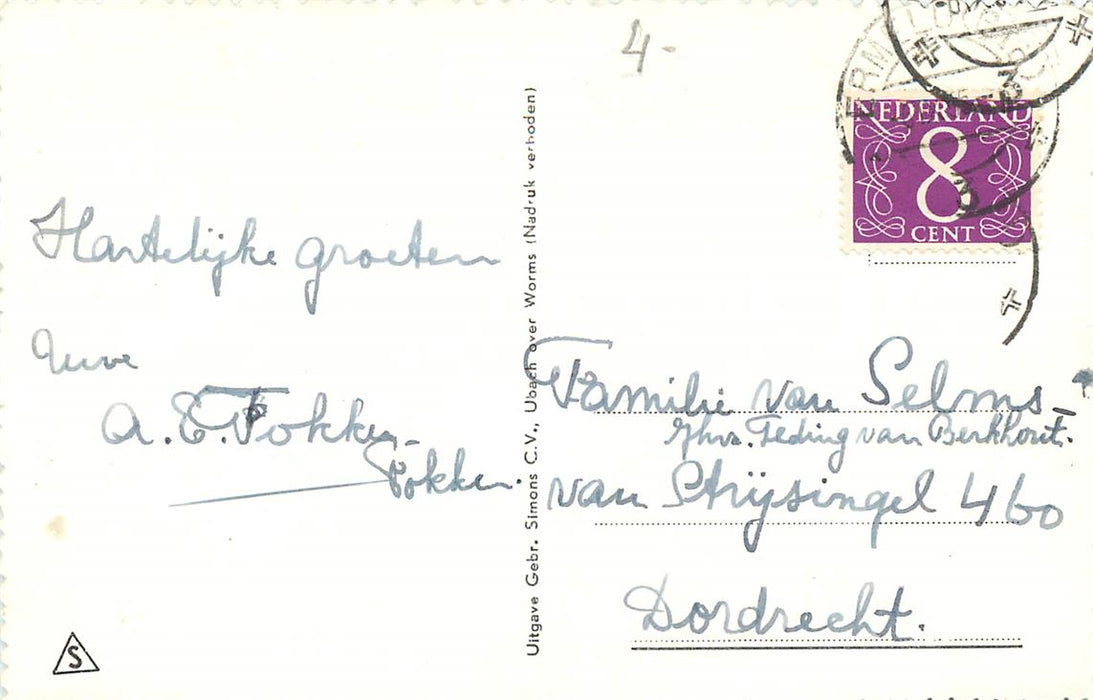 4-
NEDERLAND
8
CENT
Hartelijke groeten
Uwe
A. E. Fokker-
Fokker.
Uitgave Gebr. Simons C.V., Ubach over Worms (Nadruk verboden)
Familie van Selms-
Jhvr. Teding van Berkhout.
van Strijsingel 460
Dordrecht.
S